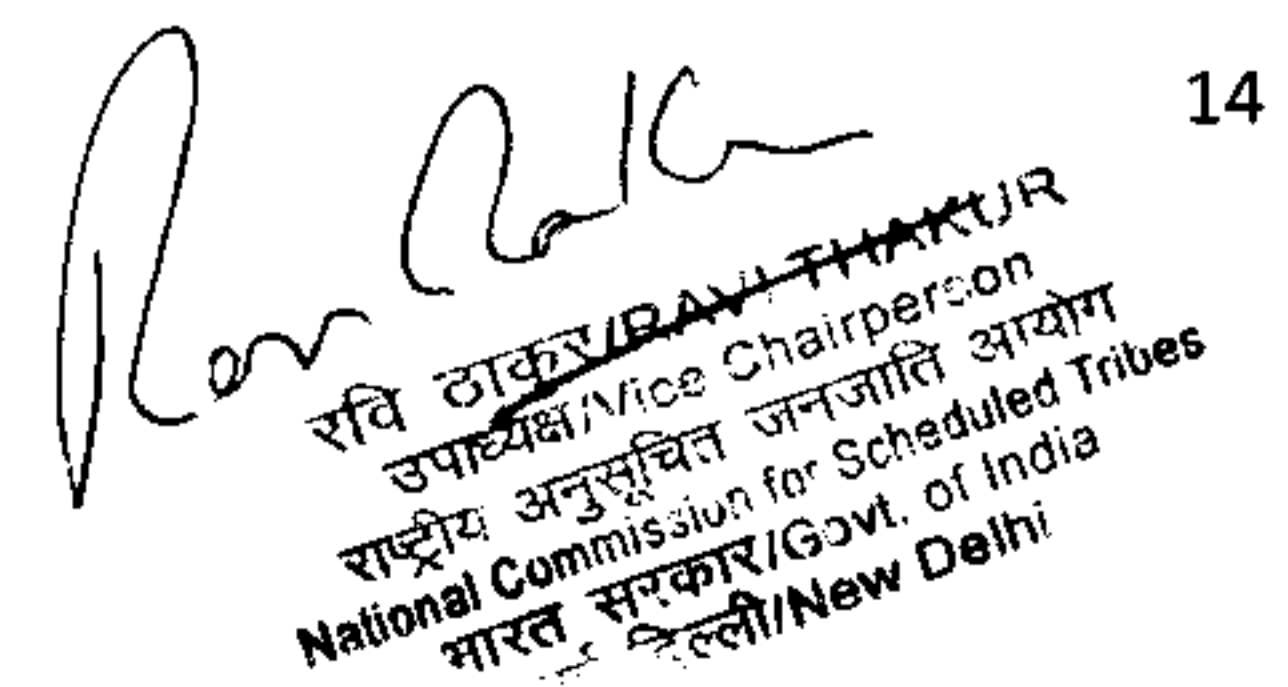 14
रवि ठाकुर/RAVI THAKUR
उपाध्यक्ष/Vice Chairperson
राष्ट्रीय अनुसूचित जनजाति आयोग
National Commission for Scheduled Tribes
भारत सरकार/Govt. of India
दिल्ली/New Delhi